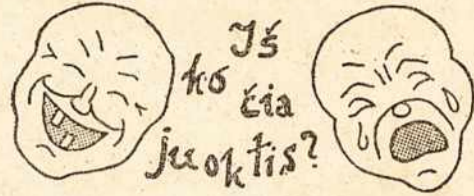 Iš
ko
čia
juoktis?